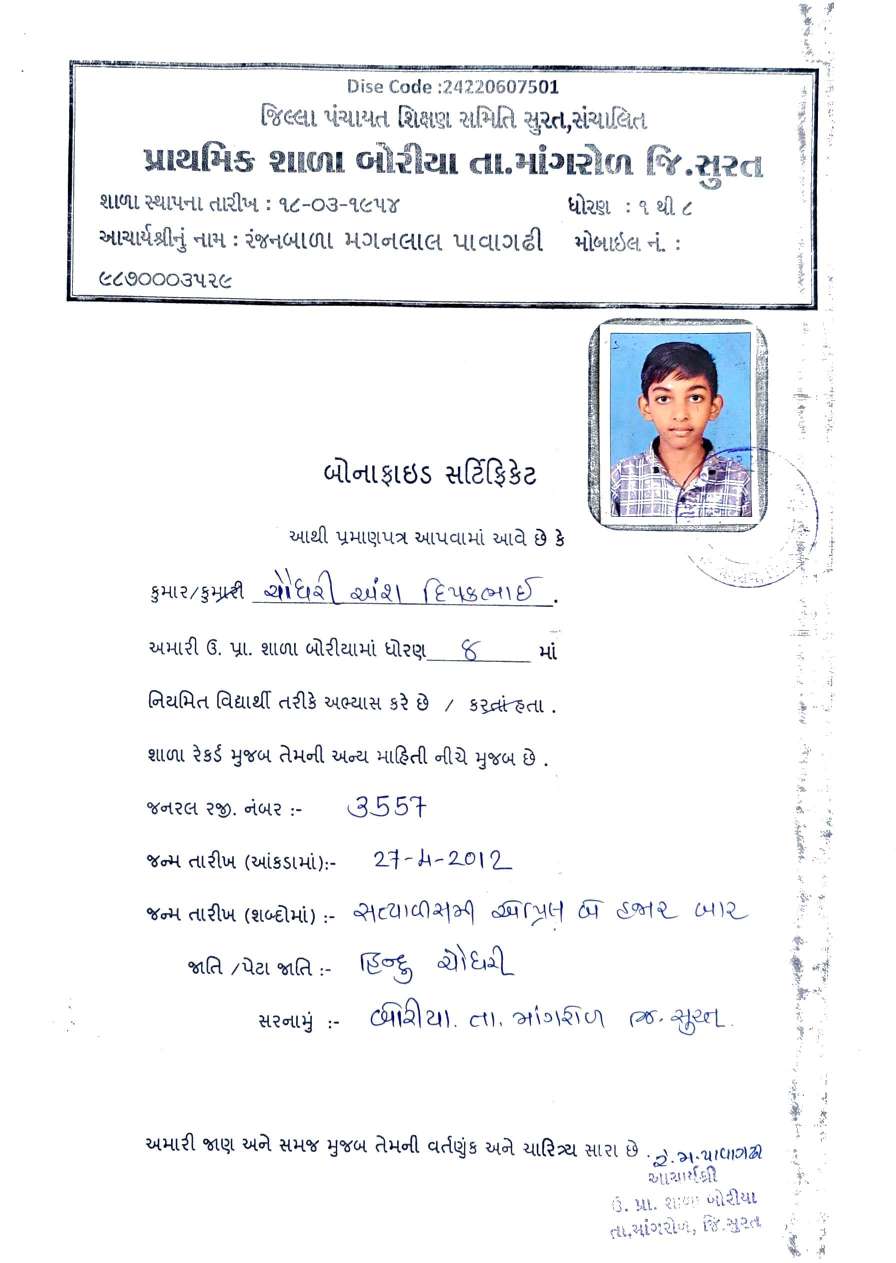 Dise Code :24220607501
જિલ્લા પંચાયત શિક્ષણ સમિતિ સુરત,સંચાલિત
પ્રાથમિક શાળા બોરીયા તા.માંગરોળ જિ.સુરત
શાળા સ્થાપના તારીખ : ૧૮-૦૩-૧૯૫૪ ધોરણ : ૧ થી ૮
આચાર્યશ્રીનું નામ : રંજનબાળા મગનલાલ પાવાગઢી મોબાઇલ નં. :
૯૮૭૦૦૦૩૫૨૯
બોનાફાઇડ સર્ટિફિકેટ
આથી પ્રમાણપત્ર આપવામાં આવે છે કે
કુમાર/કુમારી ચૌધરી અંશ દિપકભાઈ .
અમારી ઉ. પ્રા. શાળા બોરીયામાં ધોરણ 8 માં
નિયમિત વિદ્યાર્થી તરીકે અભ્યાસ કરે છે / કરતાં હતા .
શાળા રેકર્ડ મુજબ તેમની અન્ય માહિતી નીચે મુજબ છે .
જનરલ રજી. નંબર :- 3557
જન્મ તારીખ (આંકડામાં):- 27-4-2012
જન્મ તારીખ (શબ્દોમાં) :- સત્યાવીસમી એપ્રિલ બે હજાર બાર
જાતિ /પેટા જાતિ :- હિન્દુ ચૌધરી
સરનામું :- બોરીયા. તા. માંગરોળ જિ. સુરત.
અમારી જાણ અને સમજ મુજબ તેમની વર્તણુંક અને ચારિત્ર્ય સારા છે . ર. મ. પાવાગઢી
આચાર્યશ્રી
ઉ. પ્રા. શાળા બોરીયા
તા.માંગરોળ, જિ.સુરત